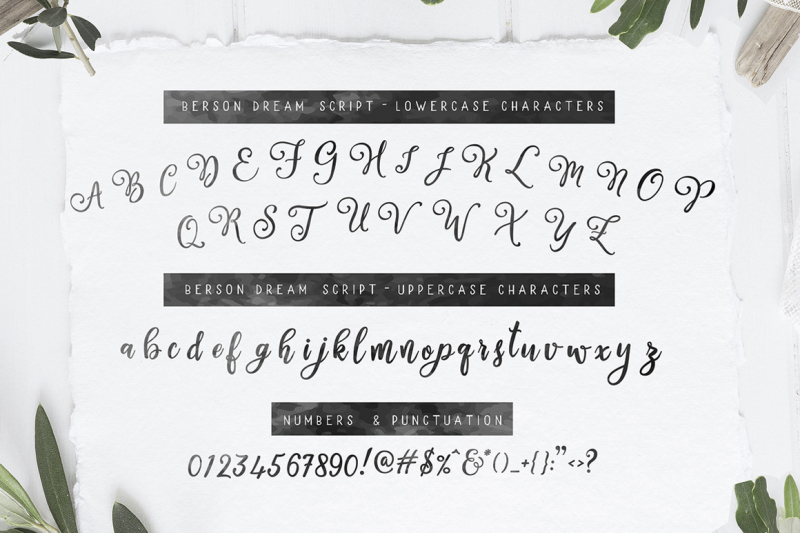 BERSON DREAM SCRIPT - LOWERCASE CHARACTERS
A B C D E F G H I J K L M N O P
Q R S T U V W X Y Z
BERSON DREAM SCRIPT - UPPERCASE CHARACTERS
a b c d e f g h i j k l m n o p q r s t u v w x y z
NUMBERS & PUNCTUATION
01234567890!@#$%^&*()_+{}:"<>?